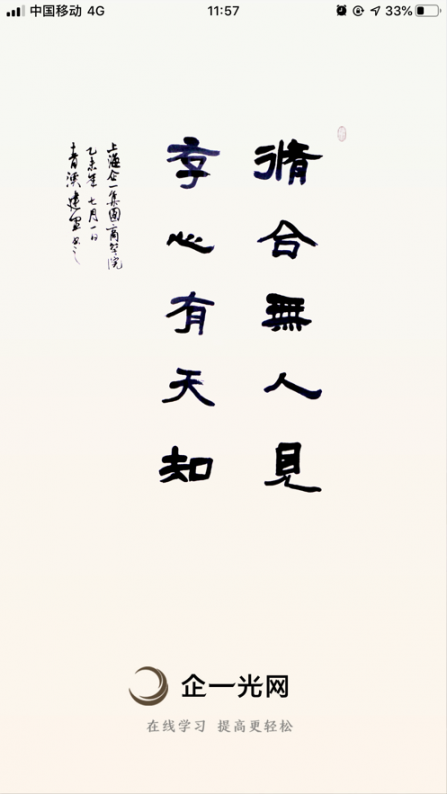 中国移动 4G 11:57 33%
脩合無人見
存心有天知
上海企一集團商學院
乙未年七月一日
企一光网
在线学习 提高更轻松